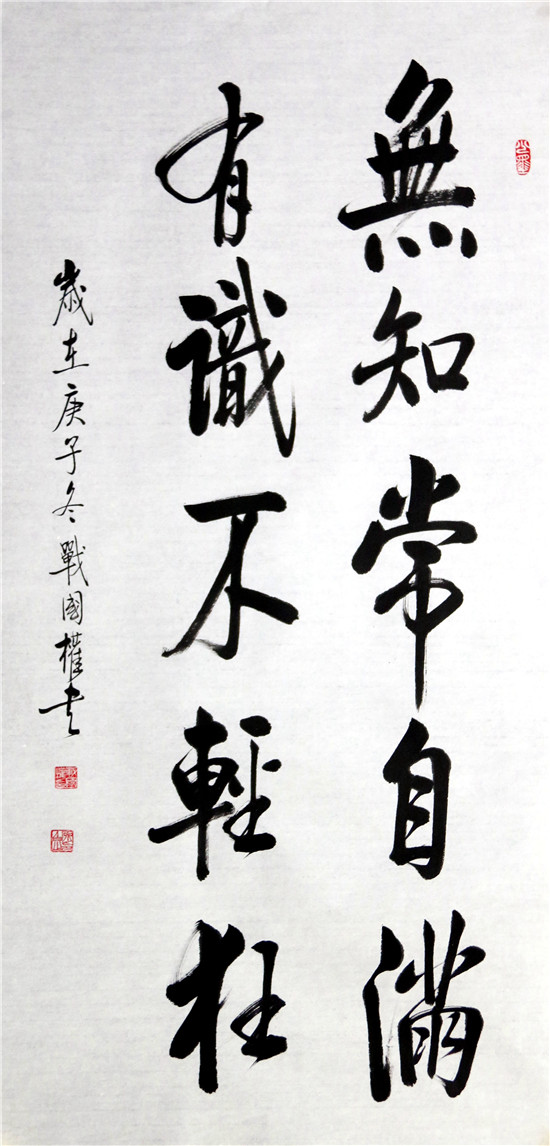 無知常自滿
有識不輕狂
歲在庚子冬戰國權書